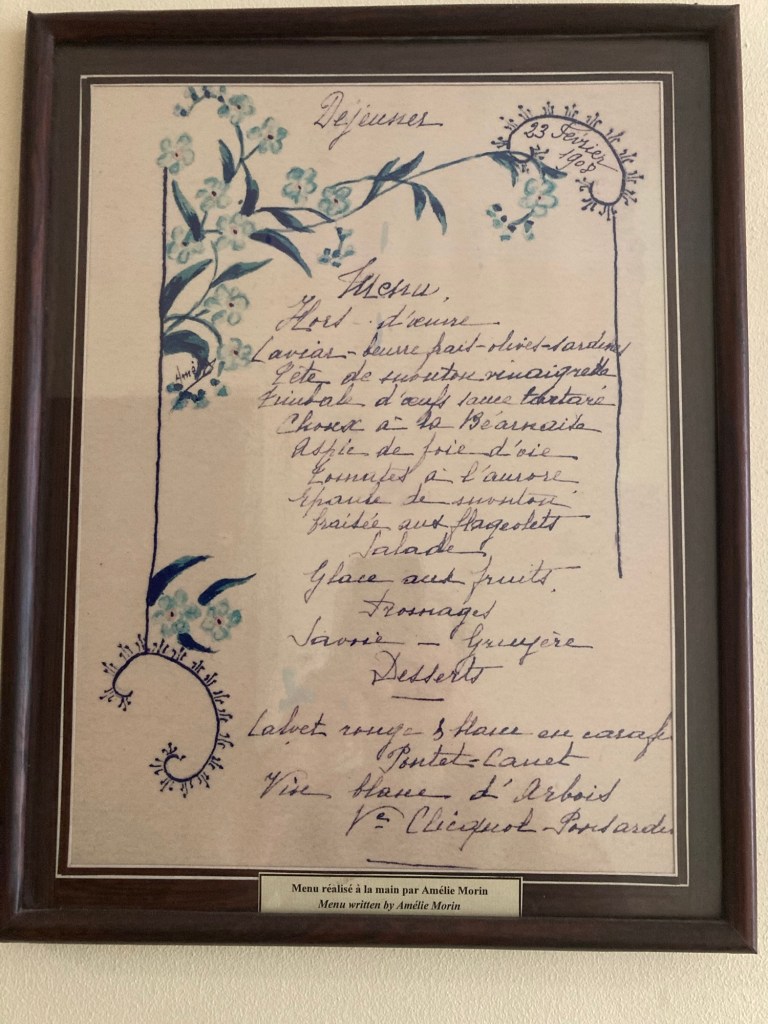 Déjeuner
23 Février
1908
Menu
Hors-d'œuvre
Caviar-beurre frais-olives-sardines
Tête de mouton vinaigrette
Timbale d'œufs sauce tartare
Choux à la Béarnaise
Aspic de foie d'oie
Tomates à l'aurore
Epaule de mouton
braisée aux flageolets
Salade
Glace aux fruits
Fromages
Savoie - Gruyère
Desserts
rouge & blanc en carafe
Pontet-Canet
Vin blanc d'Arbois
Vve Clicquot-Ponsardin
Menu réalisé à la main par Amélie Morin
Menu written by Amélie Morin